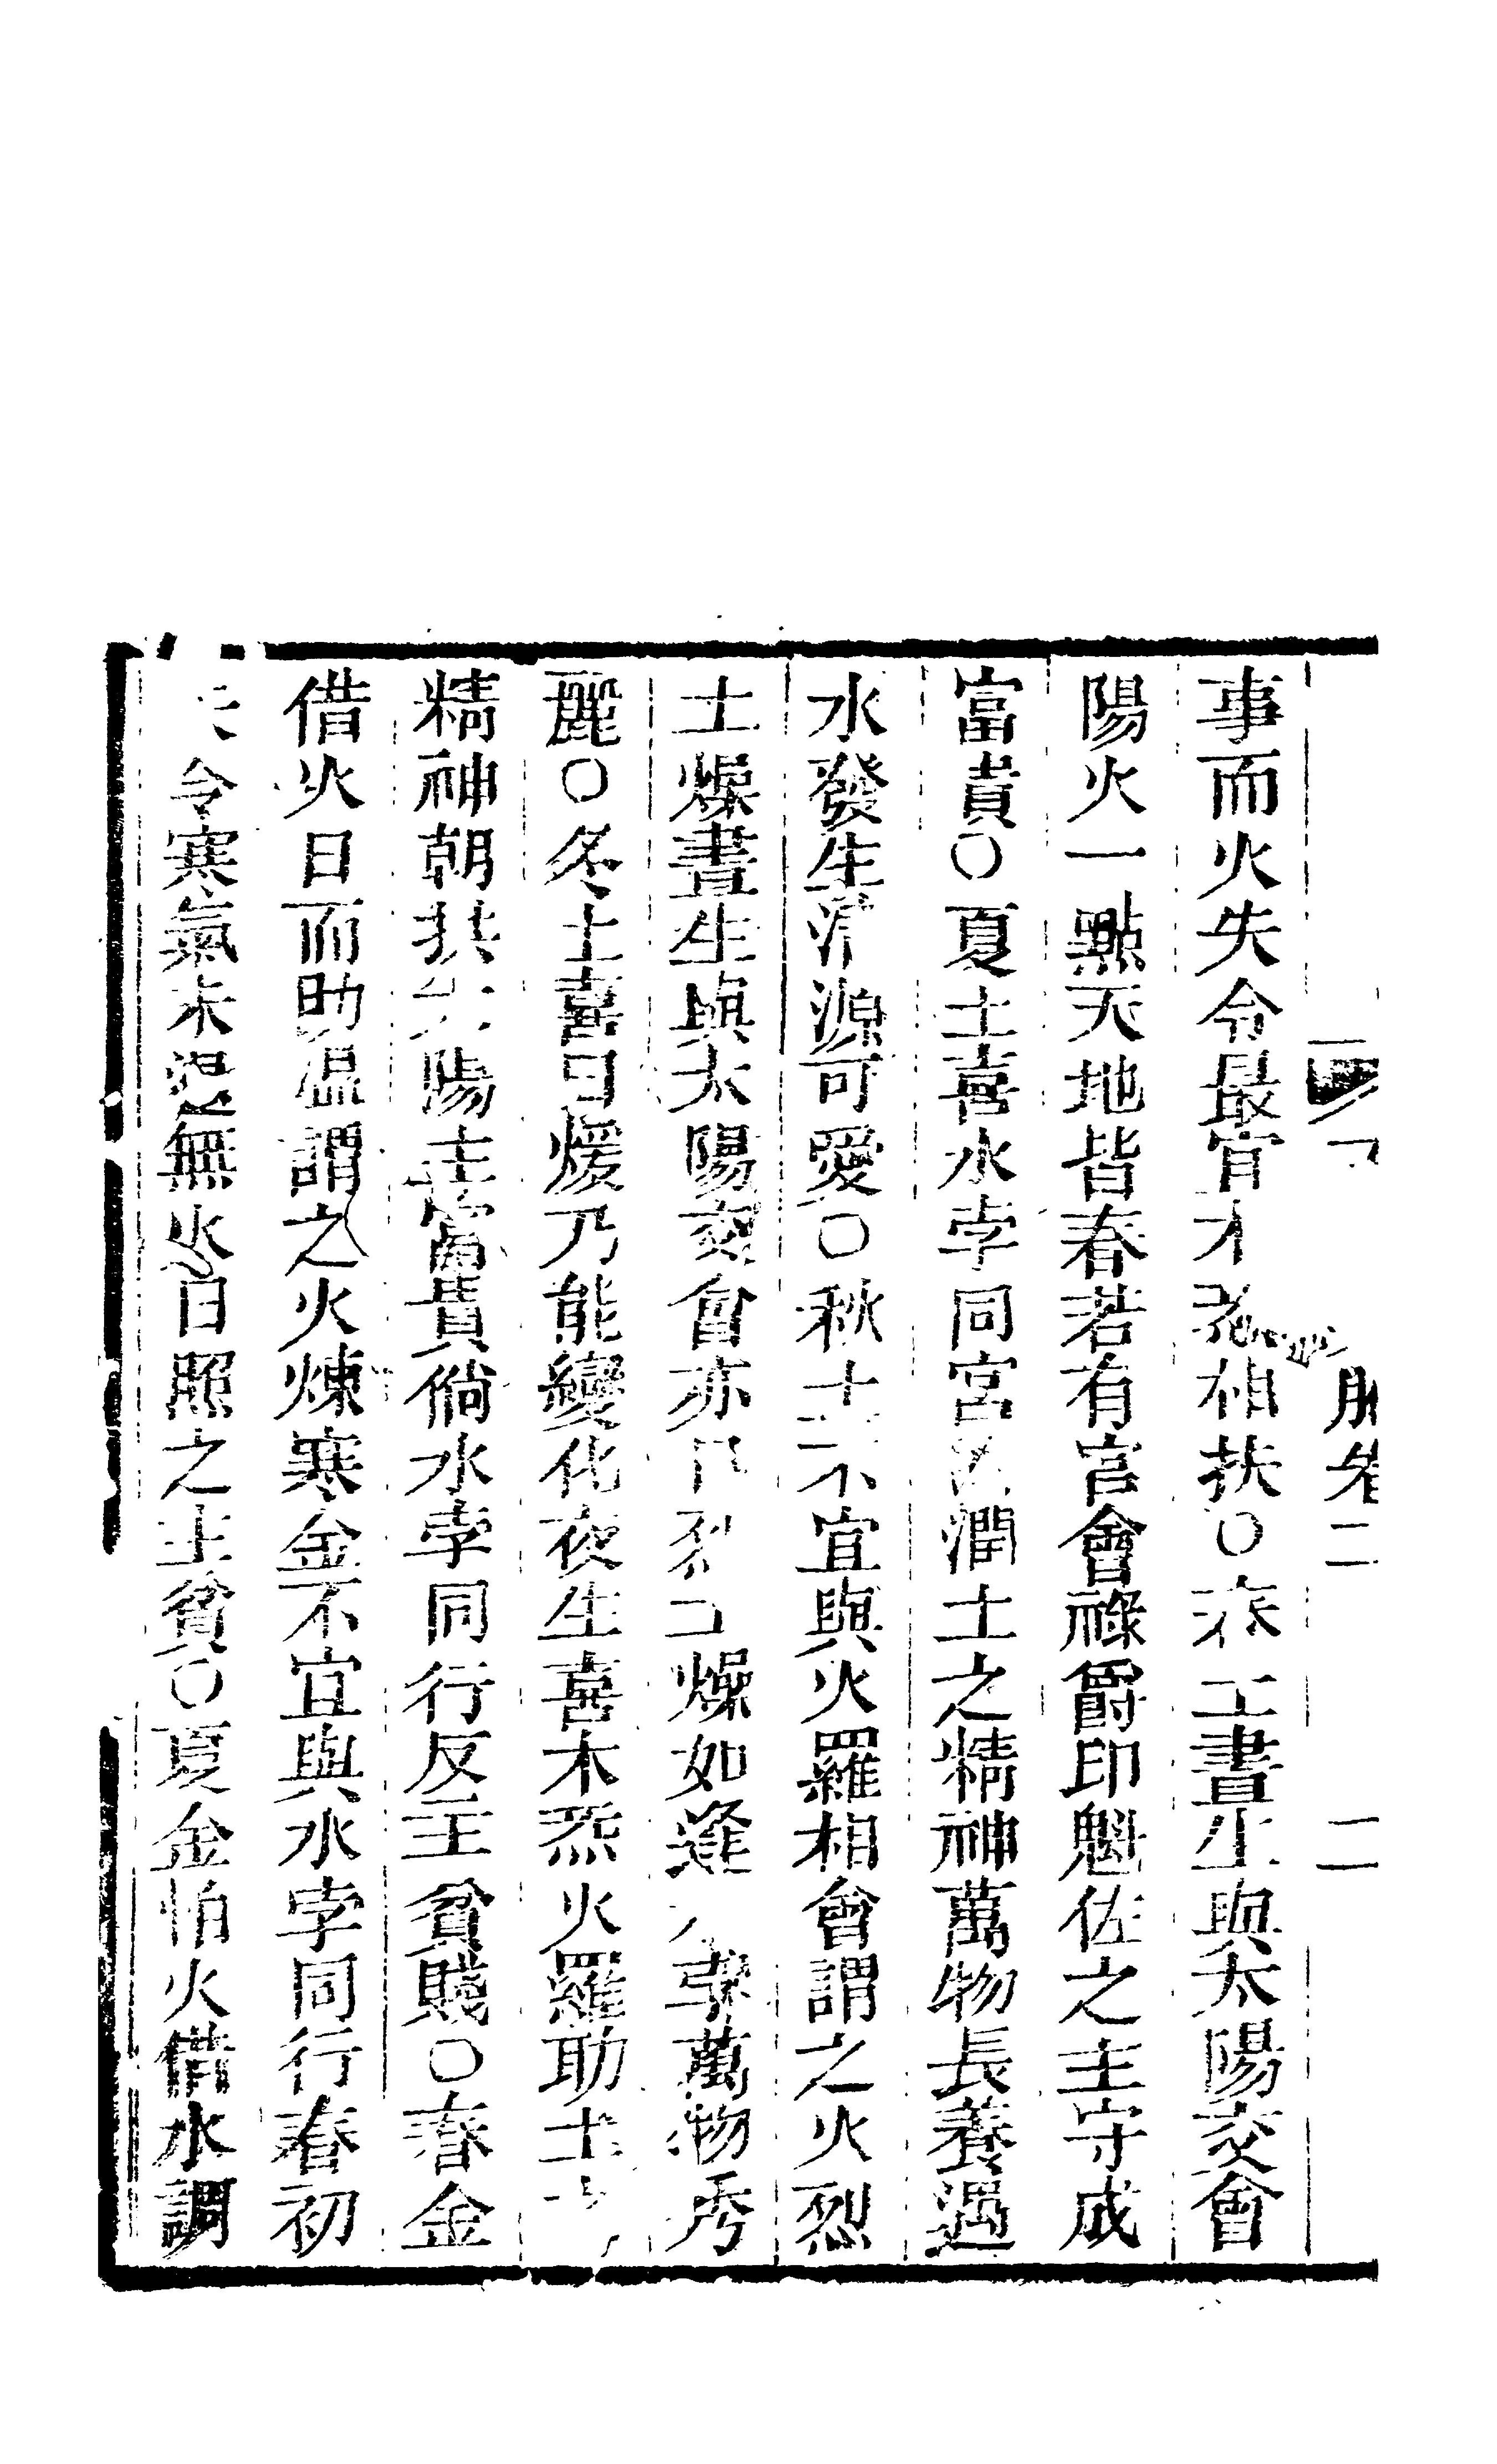 卷二
二
事而火失令最宜木炁相扶〇春土晝生與太陽交會
陽火一點天地皆春若有官會祿爵印魁佐之主守成
富貴〇夏土喜水孛同宮滋潤土之精神萬物長養遇
水發生清源可愛〇秋土不宜與火羅相會謂之火烈
土燥晝生與太陽交會亦燥如逢水孛萬物秀
麗〇冬土喜日煖乃能變化夜生喜木炁火羅助土
精神朝扶太陽主富貴倘水孛同行反主貧賤〇春金
借火日而助温謂之火煉寒金不宜與水孛同行春初
令寒氣未温無火日照之主貧〇夏金怕火借水調